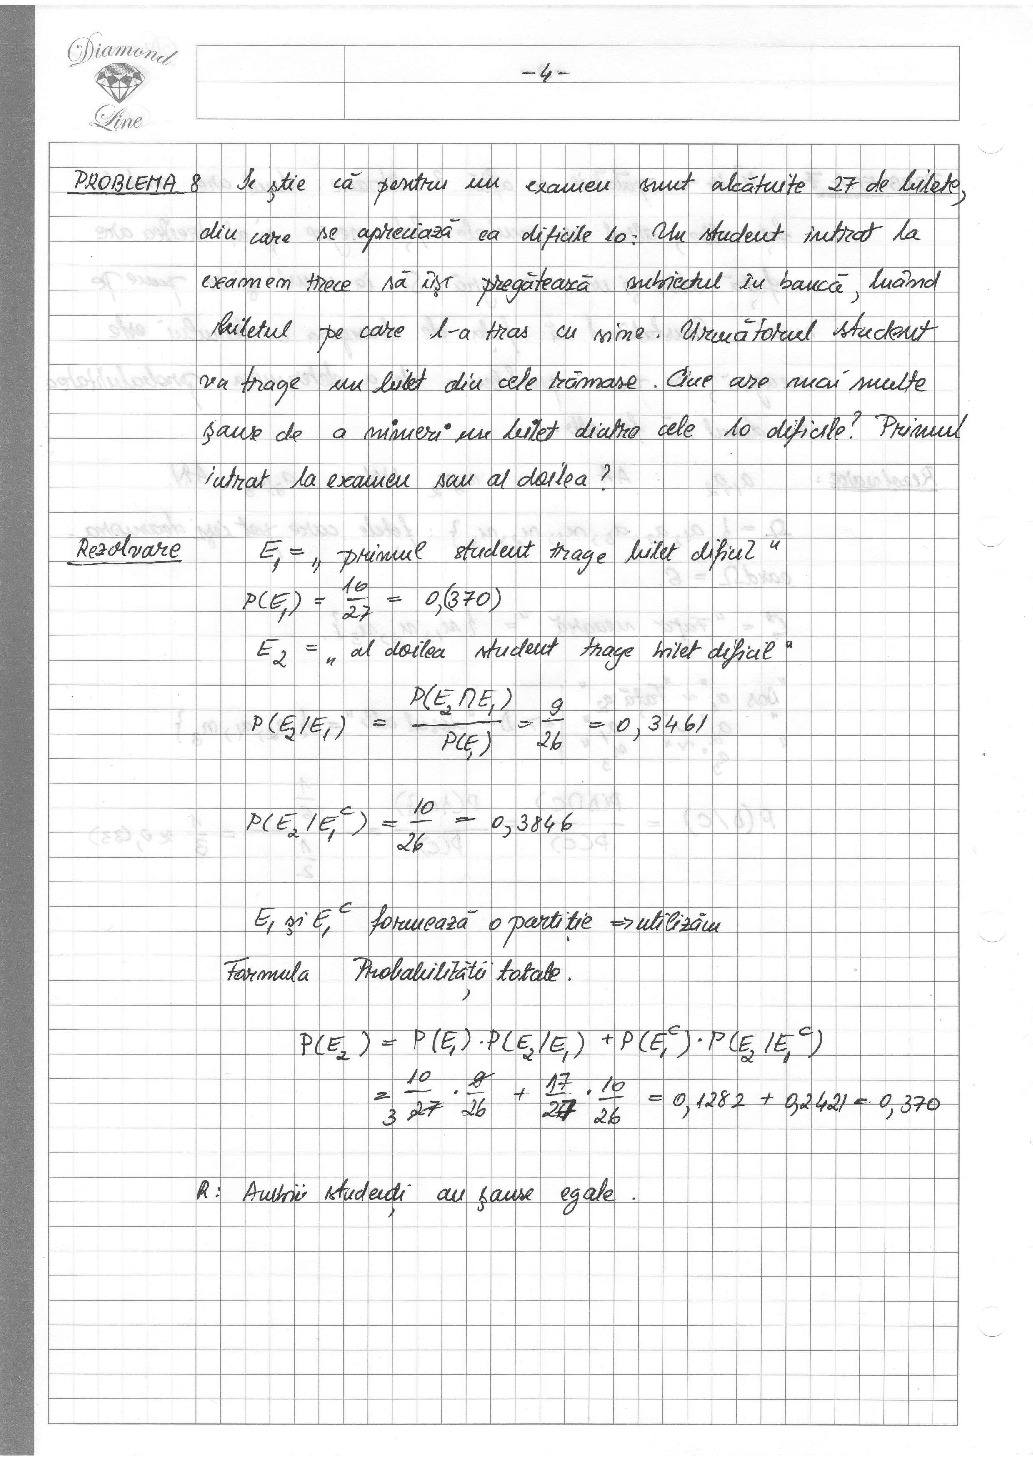 Diamond
Line
- 4 -
PROBLEMA 8 Se ştie că pentru un examen sunt alcătuite 27 de bilete,
din care se apreciază ca dificile 10. Un student intrat la
examen trece să îşi pregătească subiectul în bancă, luând
biletul pe care l-a tras cu sine. Următorul student
va trage un bilet din cele rămase. Cine are mai multe
şanse de a nimeri un bilet dintre cele 10 dificile? Primul
intrat la examen sau al doilea?
Rezolvare E₁ = „ primul student trage bilet dificil "
P(E₁) = 10/27 = 0,(370)
E₂ = „ al doilea student trage bilet dificil "
P(E₂/E₁) = P(E₂∩E₁)/P(E₁) = 9/26 = 0,3461
P(E₂/E₁ᶜ) = 10/26 = 0,3846
E₁ şi E₁ᶜ formează o partiţie => utilizăm
Formula Probabilităţii totale.
P(E₂) = P(E₁)·P(E₂/E₁) + P(E₁ᶜ)·P(E₂/E₁ᶜ)
= 10/27 · 9/26 + 17/27 · 10/26 = 0,1282 + 0,2421 = 0,370
R: Ambii studenţi au şanse egale.